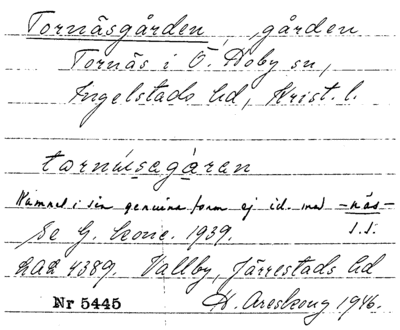 Tornäsgården, gården
Tornäs i Ö. Hoby sn,
Ingelstads hd, Krist. l.
Namnet i sin genuina form ej id. med -näs-
Se G. 1939. s.s.
LAL 4389. Vallby, Järrestads hd
Nr 5445 H. Areskoug 1946.